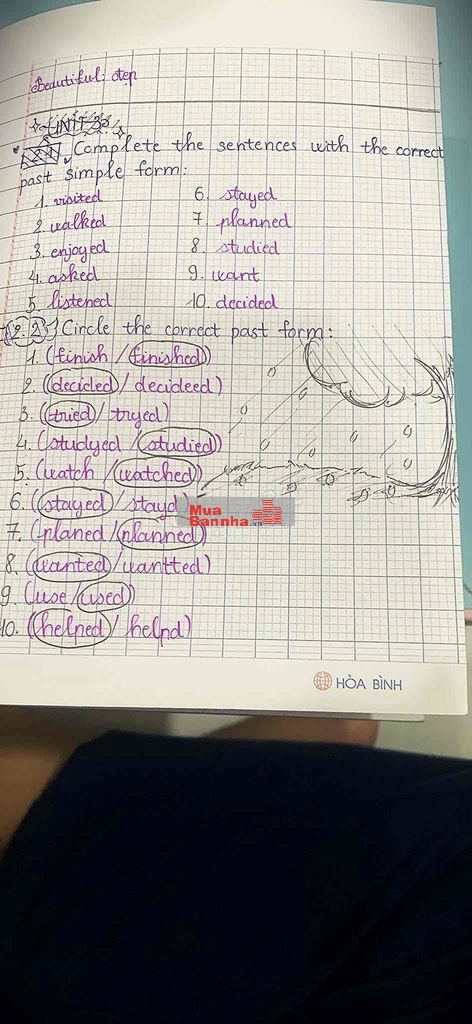 Beautiful: đẹp
UNIT 33
2.1 Complete the sentences with the correct
past simple form:
1. visited
2. walked
3. enjoyed
4. asked
5. listened
6. stayed
7. planned
8. studied
9. want
10. decided
2.2 Circle the correct past form:
1. (finish / finished)
2. (decided / decideed)
3. (tried / tryed)
4. (studyed / studied)
5. (watch / watched)
6. (stayed / stayd)
7. (planed / planned)
8. (wanted / wantted)
9. (use / used)
10. (helped / helpd)
Mua
Bannha.vn
HÒA BÌNH